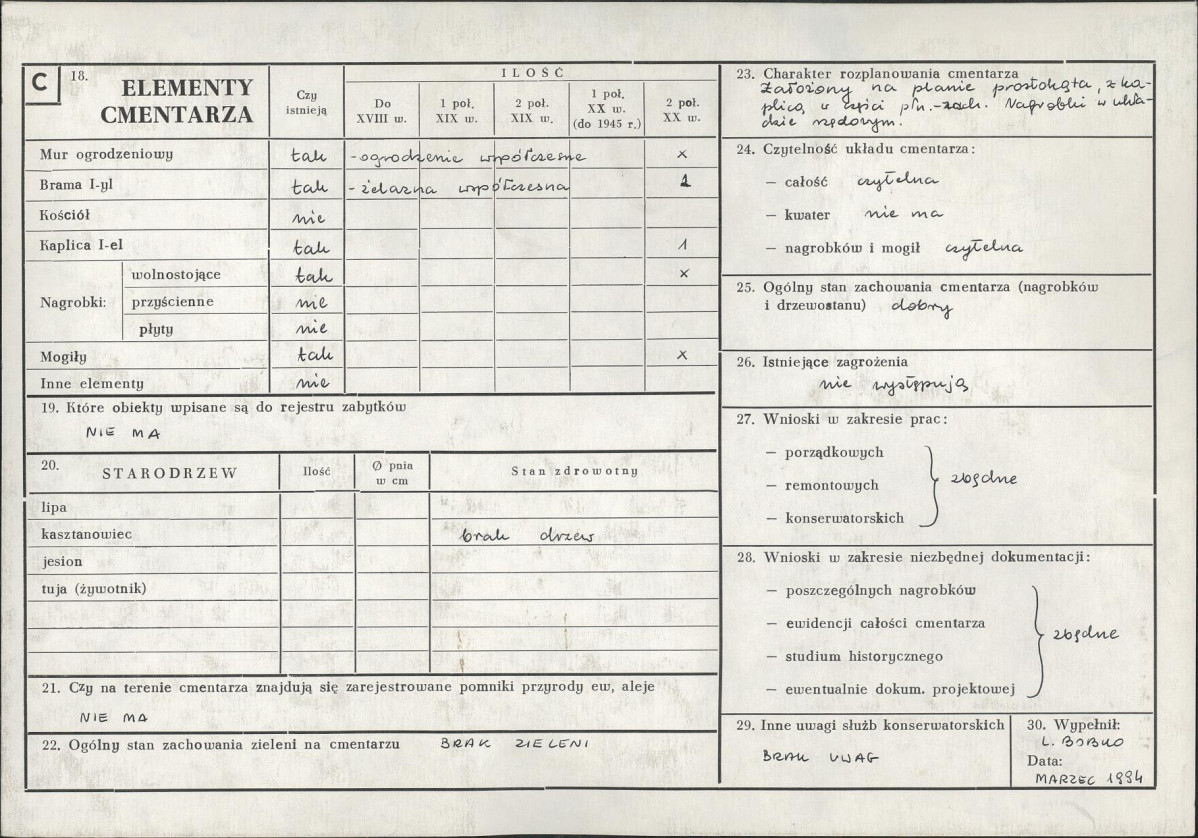 C
18. ELEMENTY
CMENTARZA
Czy
istnieją
ILOŚĆ
Do
XVIII w.
1 poł.
XIX w.
2 poł.
XIX w.
1 poł.
XX w.
(do 1945 r.)
2 poł.
XX w.
Mur ogrodzeniowy tak - ogrodzenie współczesne x
Brama I-yl tak - żelazna współczesna 1
Kościół nie
Kaplica I-el tak 1
Nagrobki: wolnostojące tak x
przyścienne nie
płyty nie
Mogiły tak x
Inne elementy nie
19. Które obiekty wpisane są do rejestru zabytków
NIE MA
20. STARODRZEW
Ilość
Ø pnia
w cm
Stan zdrowotny
lipa
kasztanowiec brak drzew
jesion
tuja (żywotnik)
21. Czy na terenie cmentarza znajdują się zarejestrowane pomniki przyrody ew, aleje
NIE MA
22. Ogólny stan zachowania zieleni na cmentarzu BRAK ZIELENI
23. Charakter rozplanowania cmentarza
Założony na planie prostokąta, z ka-
plicą w części płn.-zach. Nagrobki w ukła-
dzie rzędowym.
24. Czytelność układu cmentarza:
— całość czytelna
— kwater nie ma
— nagrobków i mogił czytelna
25. Ogólny stan zachowania cmentarza (nagrobków
i drzewostanu) dobry
26. Istniejące zagrożenia
nie występują
27. Wnioski w zakresie prac:
— porządkowych
— remontowych zbędne
— konserwatorskich
28. Wnioski w zakresie niezbędnej dokumentacji:
— poszczególnych nagrobków
— ewidencji całości cmentarza
zbędne
— studium historycznego
— ewentualnie dokum. projektowej
29. Inne uwagi służb konserwatorskich
BRAK UWAG
30. Wypełnił:
L. BOBKO
Data:
MARZEC 1994